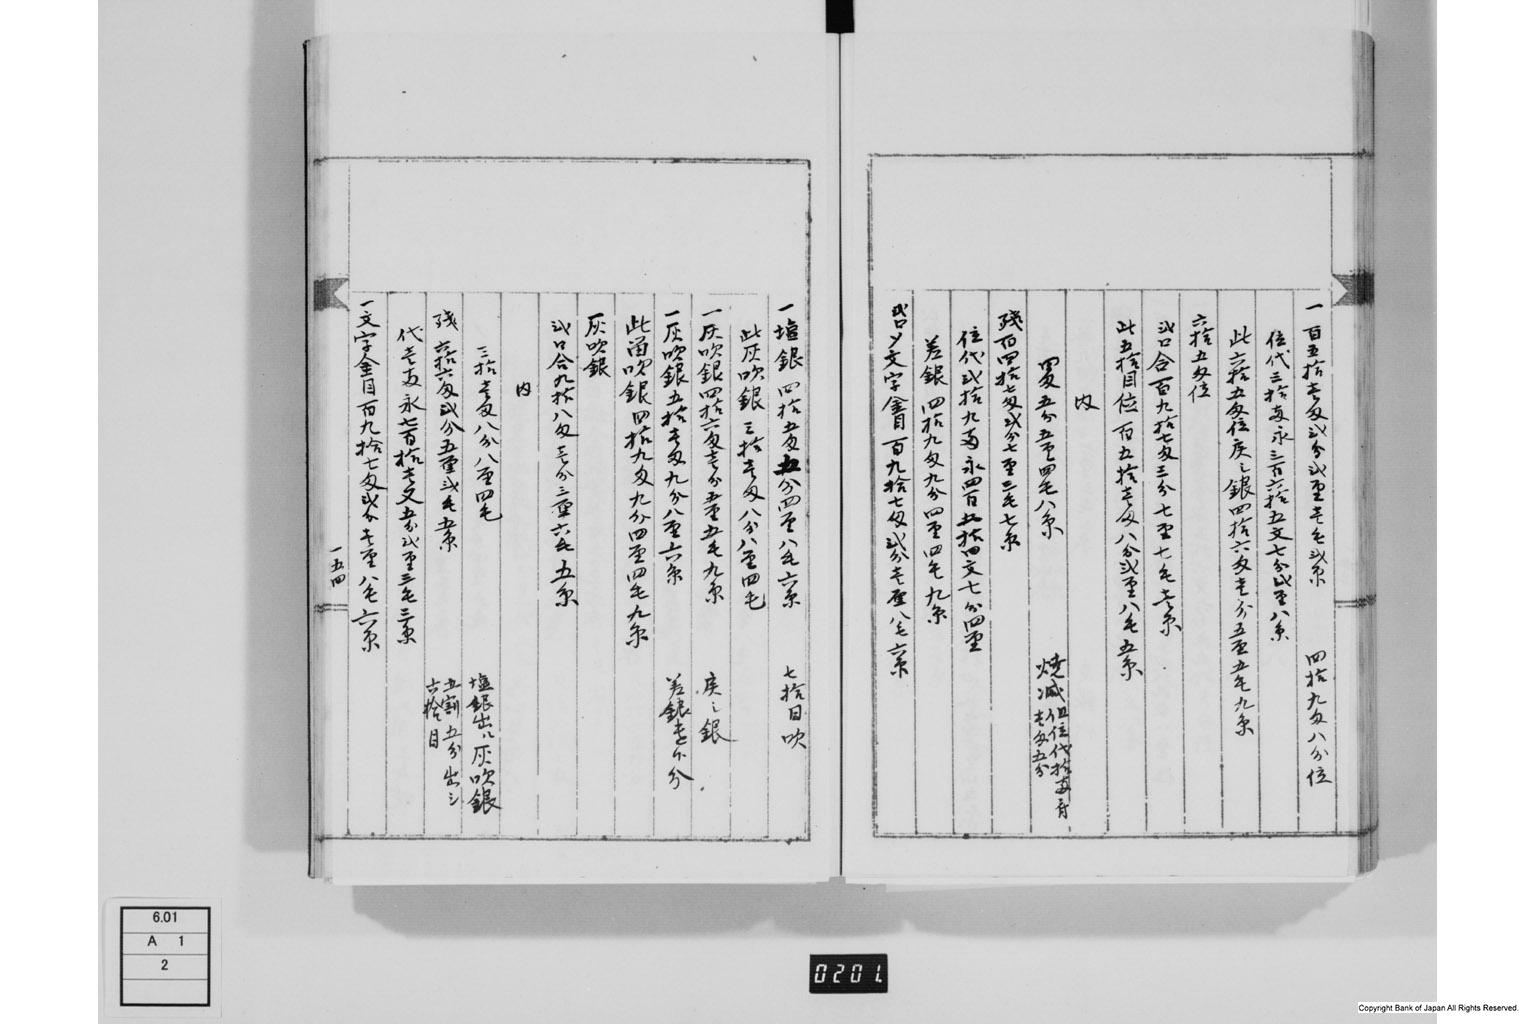 一百五拾壱匁弐分弐厘壱毛弐糸　四拾九匁八分位
位代三拾両永三百六拾五文七分弐厘八糸
此六拾五匁位戻シ銀四拾六匁壱分五厘五毛九糸
六拾五匁位
弐口合百九拾七匁三分七厘七毛壱糸
此五拾目位百五拾壱匁八分弐厘八毛五糸
内
四匁五分五厘四毛八糸　焼減
但位代拾両ニ付
壱匁五分
残百四拾七匁弐分七厘三毛七糸
位代弐拾九両永四百五拾四文七分四厘
差銀四拾九匁九分四厘四毛九糸
弐口〆文字金目百九拾七匁弐分壱厘八毛六糸
一塩銀四拾五匁五分四厘八毛六糸　七拾目吹
此灰吹銀三拾壱匁八分八厘四毛
一灰吹銀四拾六匁壱分五厘五毛九糸　戻シ銀
一灰吹銀五拾壱匁九分八厘六糸　差銀壱分
此笛吹銀四拾九匁九分四厘四毛九糸
灰吹銀
弐口合九拾八匁壱分三厘六毛五糸
内
三拾壱匁八分八厘四毛　塩銀出ル灰吹銀
残六拾六匁弐分五厘弐毛五糸　五割五分出シ
六拾目
代壱両永七百拾壱文五分弐厘三毛三糸
一文字金目百九拾七匁弐分壱厘八毛六糸
一五四
6.01
A 1
2
0201.
Copyright Bank of Japan All Rights Reserved.